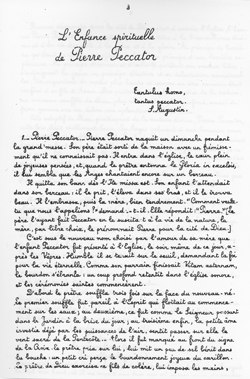 L'Enfance spirituelle
de Pierre Peccator
Tantulus homo,
tantus peccator.
S. Augustin.
1_ Pierre Peccator... Pierre Peccator naquit un dimanche pendant
la grand'messe. Son père était sorti de la maison avec un frémisse-
ment qu'il ne connaissait pas. Il entra dans l'église, le cœur plein
de joyeuses pensées, et, quand le prêtre entonna le Gloria in excelsis,
il lui sembla que les Anges chantaient encore sur un berceau.
Il quitta son banc dès l'Ite missa est. Son enfant l'attendait
dans son berceau : il le prit, l'éleva dans ses bras, et il le trouva
beau. Il l'embrassa, puis la mère, bien tendrement. "Comment veux-
tu que nous l'appelions ?" demanda-t-il. Elle répondit : "Pierre." (Le
père l'ayant fait Peccator en le suscitant à la vie de la nature, la
mère, par libre choix, le prénommait Pierre pour la cité de Dieu.)
C'est sous le nouveau nom choisi par l'amour de sa mère que
l'enfant Peccator fut présenté à l'Église, le soir même de ce jour, a-
près les Vêpres. Humble il se taisait sur le seuil, demandant la foi
pour la vie éternelle. Comme son parrain finissait
le bourdon s'ébranla : un coup profond retentit dans l'église sonore,
et les cérémonies saintes commencèrent.
D'abord le prêtre souffla trois fois sur la face du nouveau-né.
Le premier souffle fut pareil à l'Esprit qui flottait au commence-
ment sur les eaux ; au deuxième, ce fut comme le Seigneur, passant
dans le Jardin à la brise du jour ; au troisième enfin, la petite âme
investie déjà par les puissances de l'air, sentit passer sur elle le
vent sacré de la Pentecôte. Alors il fut marqué au front du signe
de la Croix. Le prêtre pria sur lui, lui mit un peu de sel bénit dans
la bouche : un petit cri perça le bourdonnement joyeux du carillon.
Le prêtre de Jésu exorcisa ce fils de colère, lui imposa les mains,